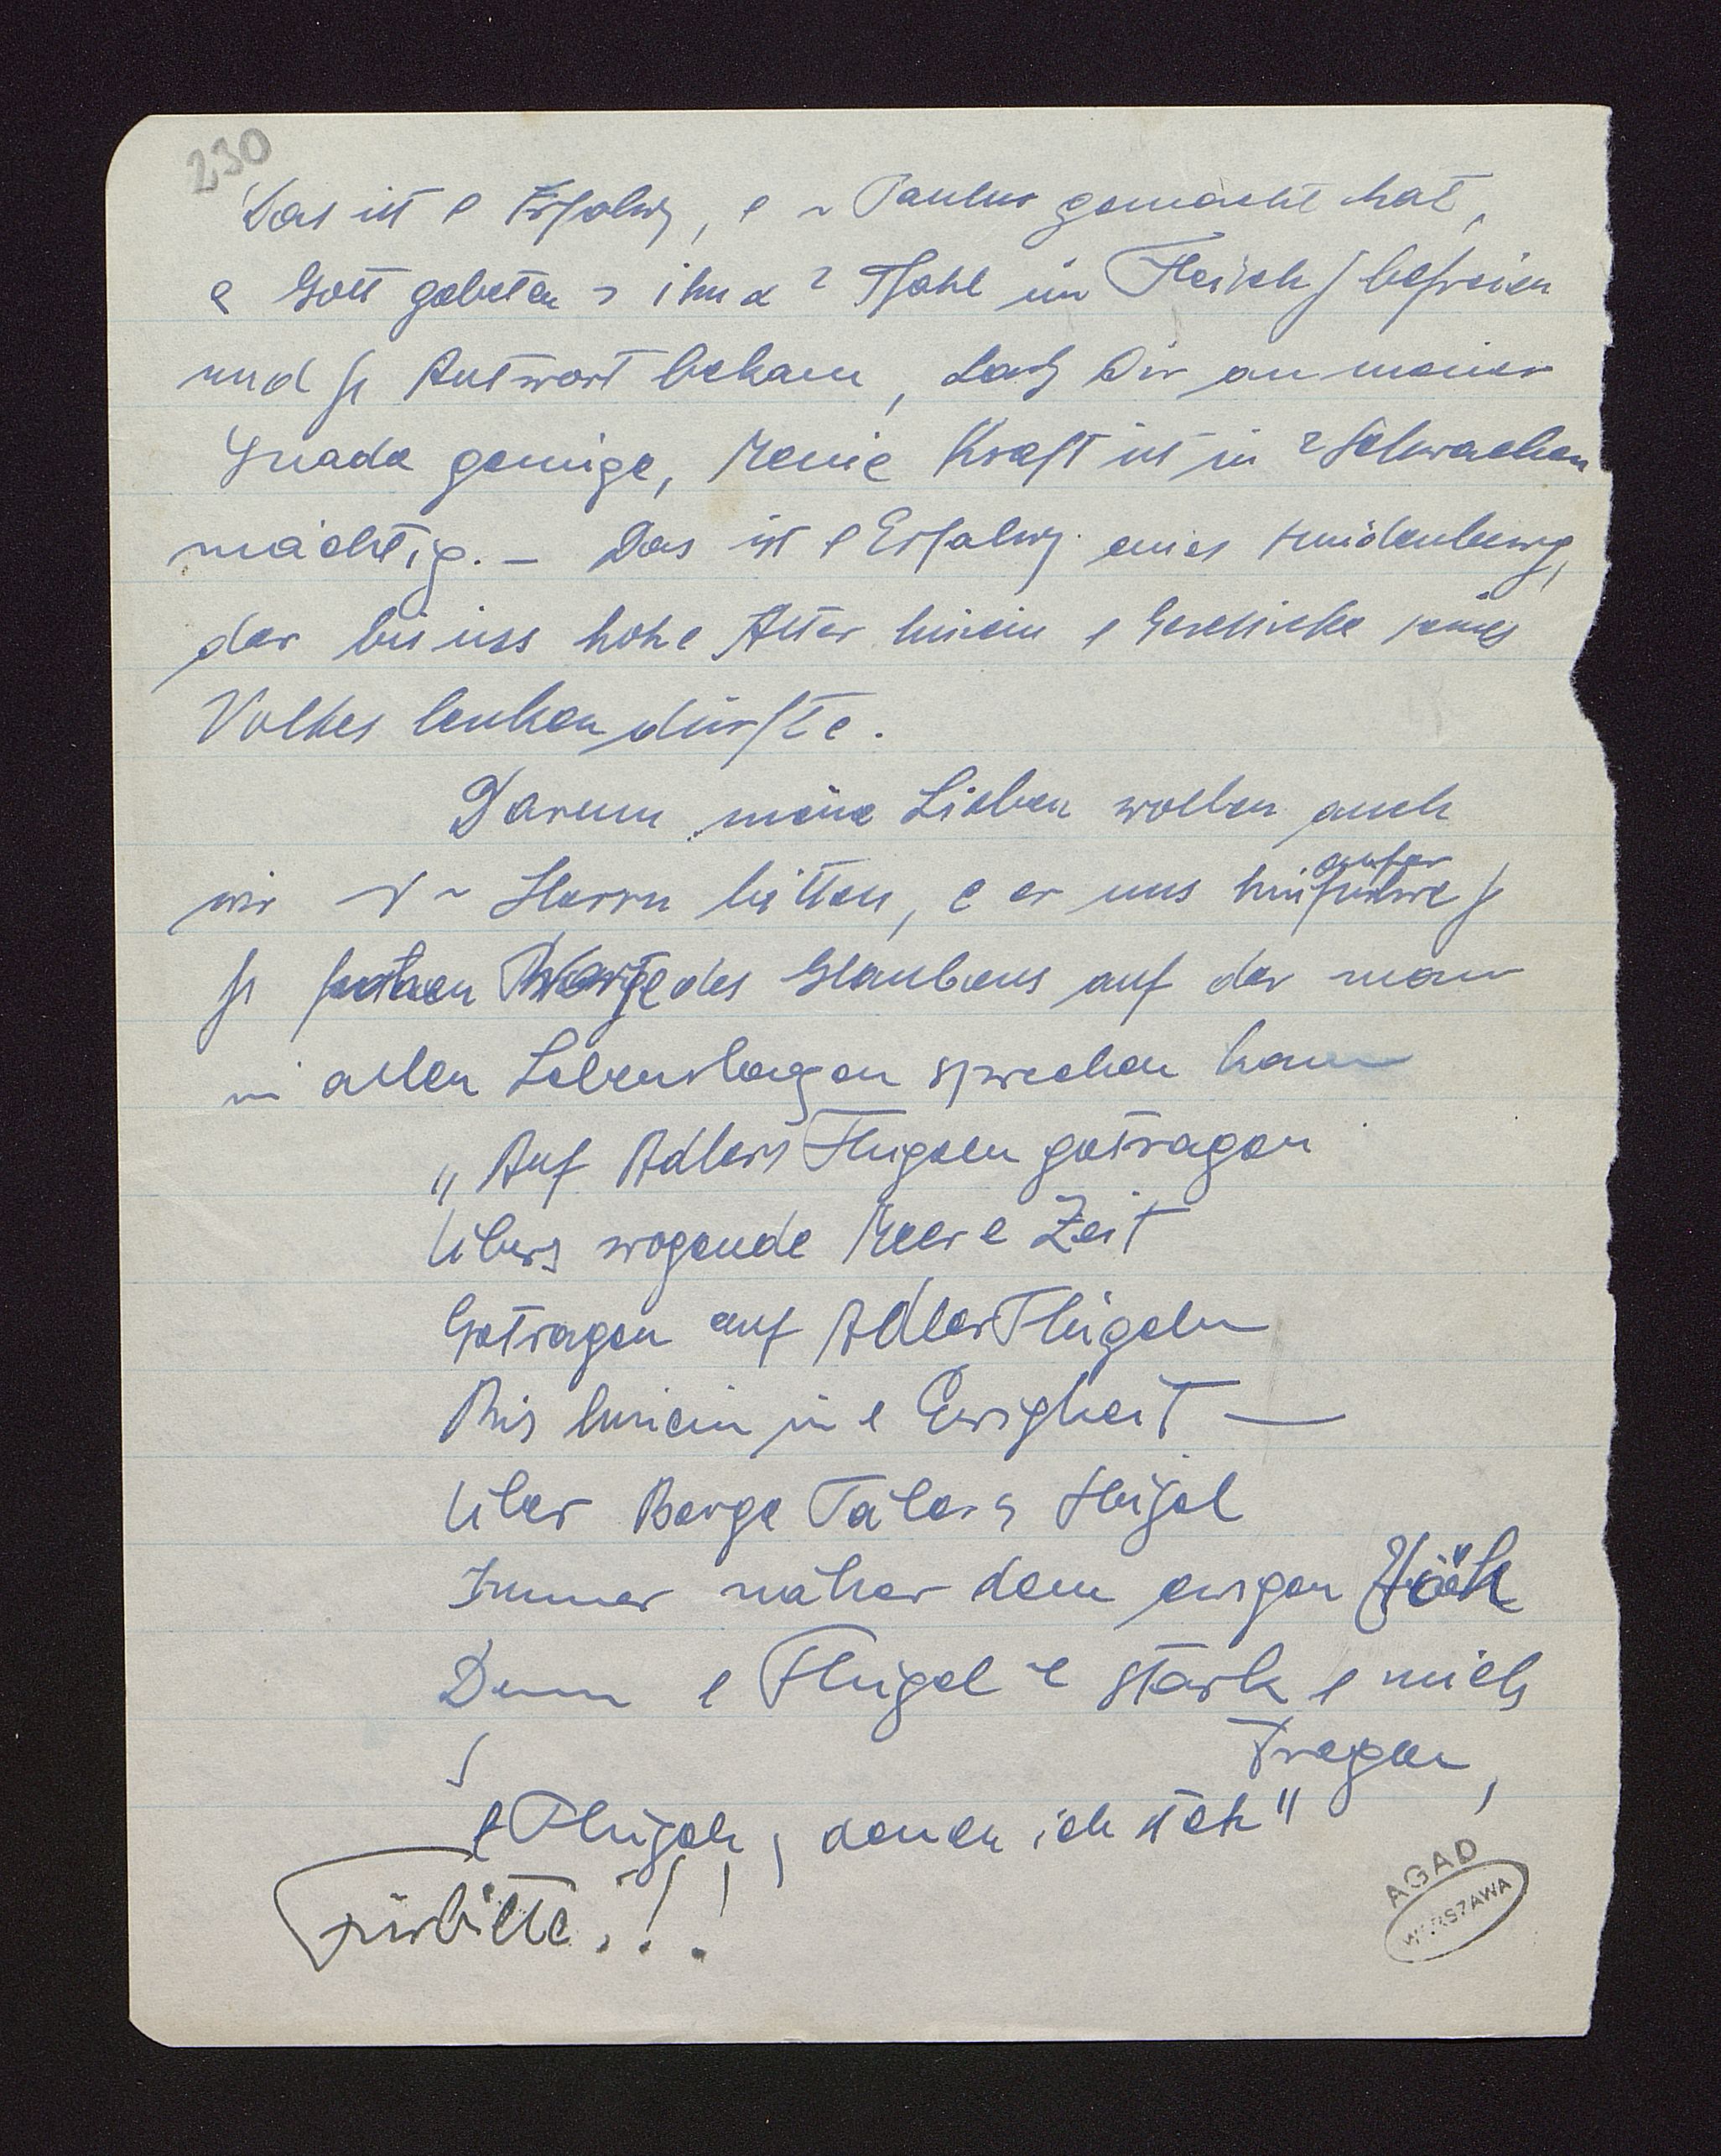 230
Das ist e Erfahrg, e ~ Paulus gemacht hat,
e Gott gebeten ihn Pfahl im Fleisch befreien
und Antwort bekam, Lass Dir an meiner
Gnade genüge, Meine Kraft ist in Schwachen
mächtig. – Das ist e Erfahrg. eines Hindenburg,
der bis ins hohe Alter hinein e Geschicke seines
Volkes lenken dürfte.
Darum meine Lieben wollen auch
wir Herrn bitten, e er uns
hohen Warte des Glaubens auf der man
in allen Lebenslagen sprechen kann
„Auf Adlers Flügeln getragen
Übers wogende Meer e Zeit
Getragen auf Adlers Flügeln
Bis hinein in e Ewigkeit —
Über Berge Täler Hügel
Immer näher dem ewgen
Denn e Flügel stark e mich
tragen,
e Flügel, denen ich steh"
Fürbitte.!!
AGAD
WARSZAWA